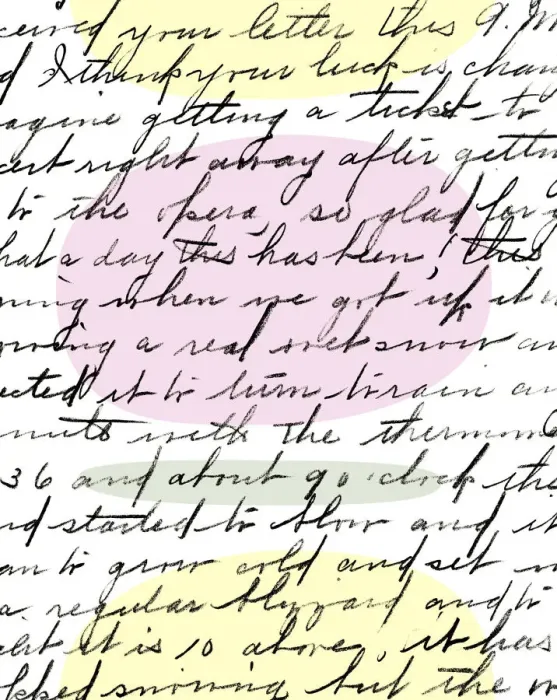 ceived your letter this A.M
d I think your luck is chan
agine getting a ticket to
cert right away after gettin
to the opera, so glad for y
hat a day this has been! this
ning when we got up it w
nowing a real wet snow an
ected it to turn to rain an
nuts with the thermom
36 and about 9 o'clock the
nd started to blow and it
an to grow cold and set in
a regular blizzard and to
ight it is 10 above, it has
pped snowing but the w